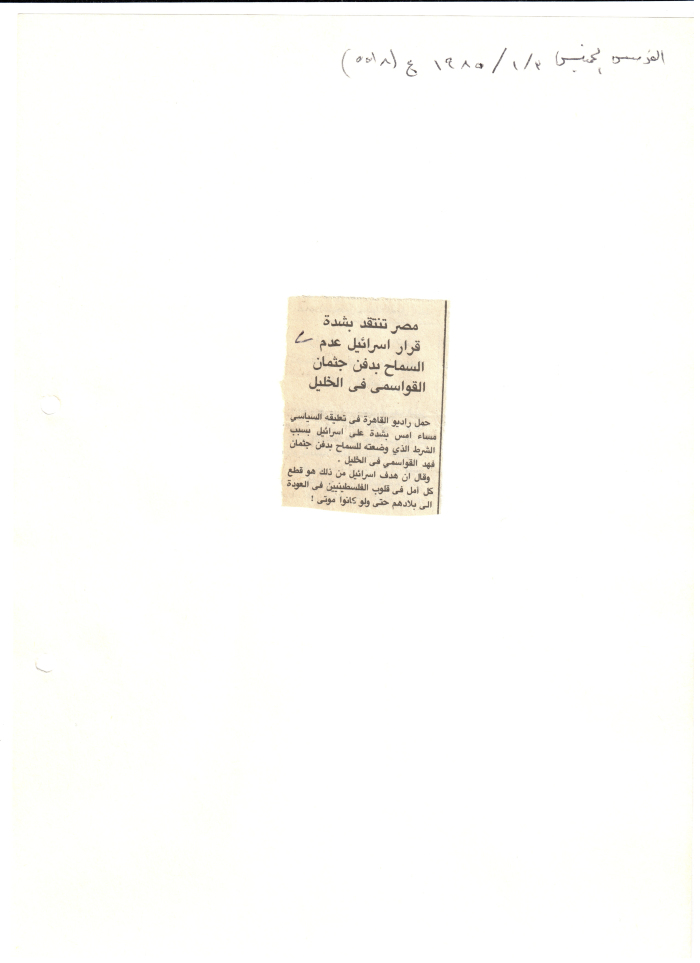 القدس الخميس ٣/١/١٩٨٥ ع (٥٥١٨)
مصر تنتقد بشدة
قرار اسرائيل عدم
السماح بدفن جثمان
القواسمى فى الخليل
حمل راديو القاهرة فى تعليقه السياسي
مساء امس بشدة على اسرائيل بسبب
الشرط الذي وضعته للسماح بدفن جثمان
فهد القواسمي فى الخليل .
وقال ان هدف اسرائيل من ذلك هو قطع
كل امل فى قلوب الفلسطينيين فى العودة
الى بلادهم حتى ولو كانوا موتى !